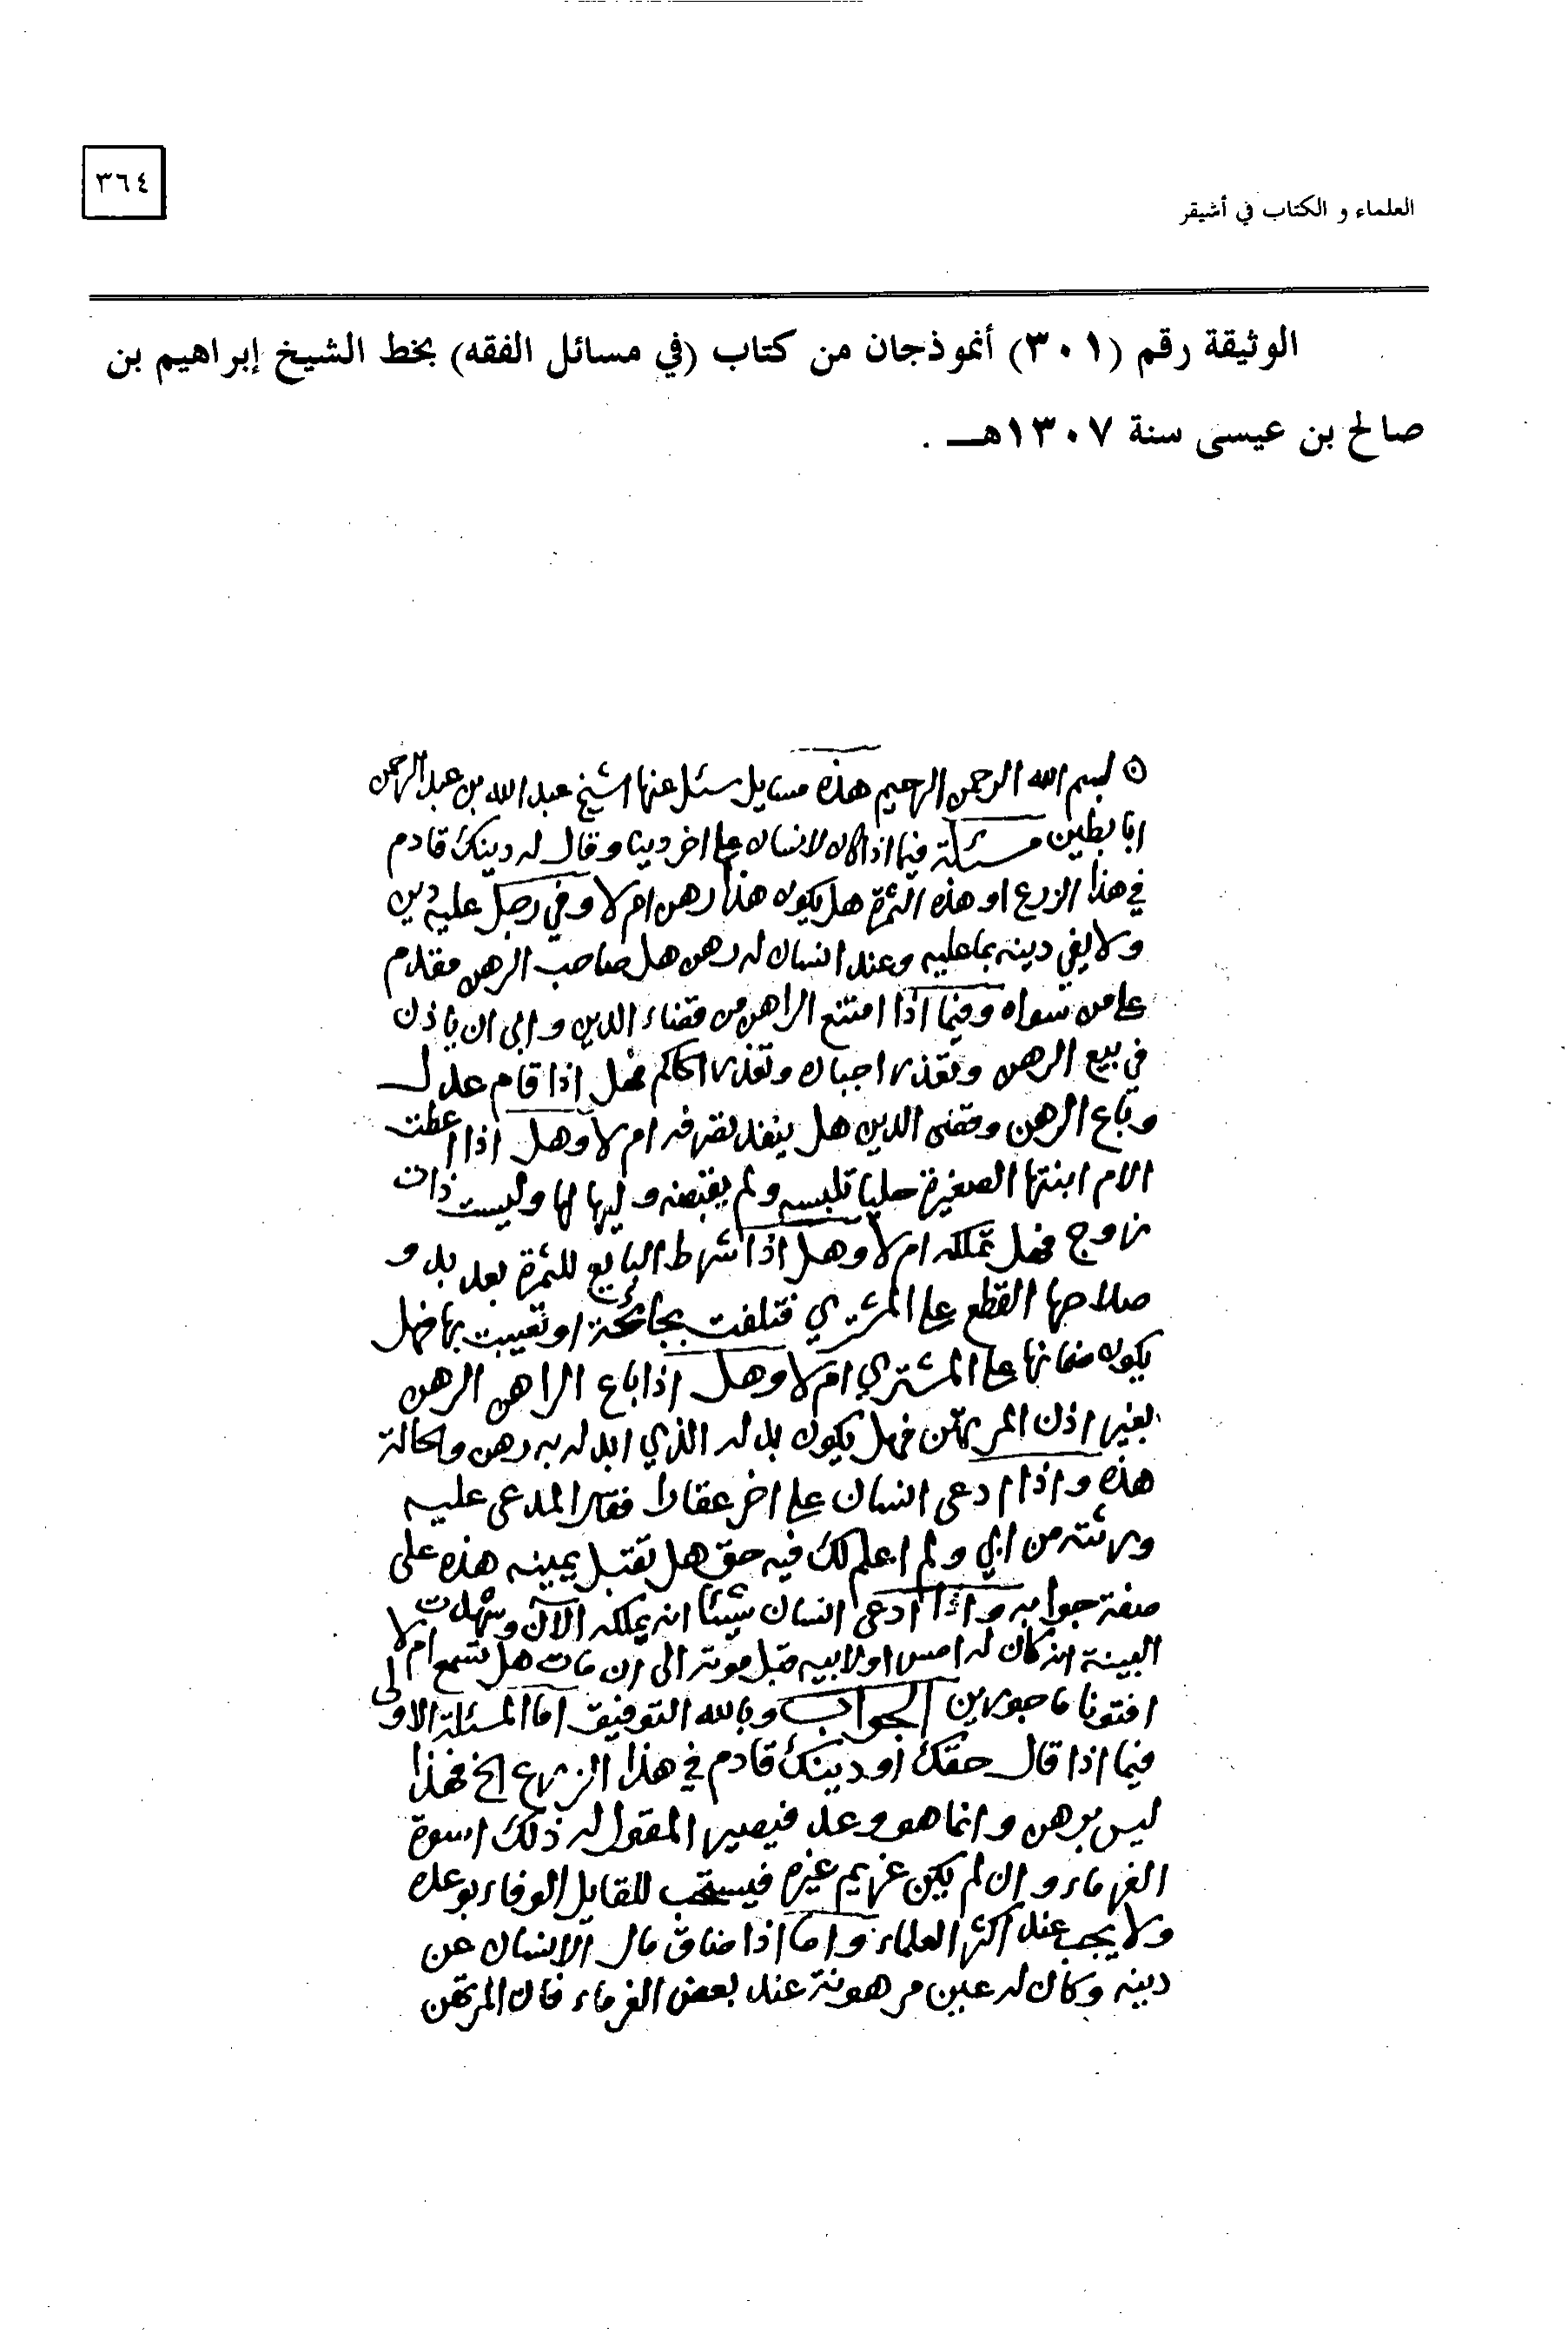 ٣٦٤
العلماء و الكتاب في أشيقر
الوثيقة رقم (٣٠١) أنموذجان من كتاب (في مسائل الفقه) بخط الشيخ إبراهيم بن
صالح بن عيسى سنة ١٣٠٧هـ .
بسم الله الرحمن الرحيم هذه مسايل سئل عنها الشيخ عبد الله بن عبد الرحمن
ابا بطين مسئلة فيما اذا كان لانسان على اخر دينا وقال له دينك قادم
في هذا الزرع او هذه الثمرة هل يكون هذا رهن ام لا وفي رجل عليه دين
ولا يفي دينه بما عليه وعند انسان له رهن هل صاحب الرهن مقدم
على من سواه وفيما اذا امتنع الراهن من قضاء الدين وابى ان ياذن
في بيع الرهن وتعذر اجباره وتعذر الحاكم فهل اذا قام عدل
وباع الرهن وقضى الدين هل ينفذ تصرفه ام لا وهل اذا اعطت
الام ابنتها الصغيرة حليا تلبسه ولم يقبضه وليها لها وليست ذات
زوج فهل تملكه ام لا وهل اذا شرط البايع للثمرة بعد بدو
صلاحها القطع على المشتري فتلفت بجائحة او تعيبت بها فهل
يكون ضمانها على المشتري ام لا وهل اذا باع الراهن الرهن
بغير اذن المرتهن فهل يكون بدله الذي ابدله به رهن والحالة
هذه واذا ادعى انسان على اخر عقارا فقال المدعى عليه
ورثته من ابي ولم اعلم لك فيه حق هل تقبل يمينه هذه على
صفة جوابه واذا ادعى انسان شيئا انه يملكه الآن وشهدت
البينة انه كان له امس او لابيه قبل موته الى ان مات هل تسمع ام لا
افتونا ماجورين الجواب وبالله التوفيق اما المسئلة الاولى
فيما اذا قال حقك او دينك قادم في هذا الزرع الخ فهذا
ليس برهن وانما هو وعد فيصير المقول له ذلك اسوة
الغرماء وان لم يكن غريم غيره فيستحب للقايل الوفاء بوعده
ولا يجب عند اكثر العلماء واما اذا ضاق مال الانسان عن
دينه وكان له عين مرهونة عند بعض الغرماء فان المرتهن